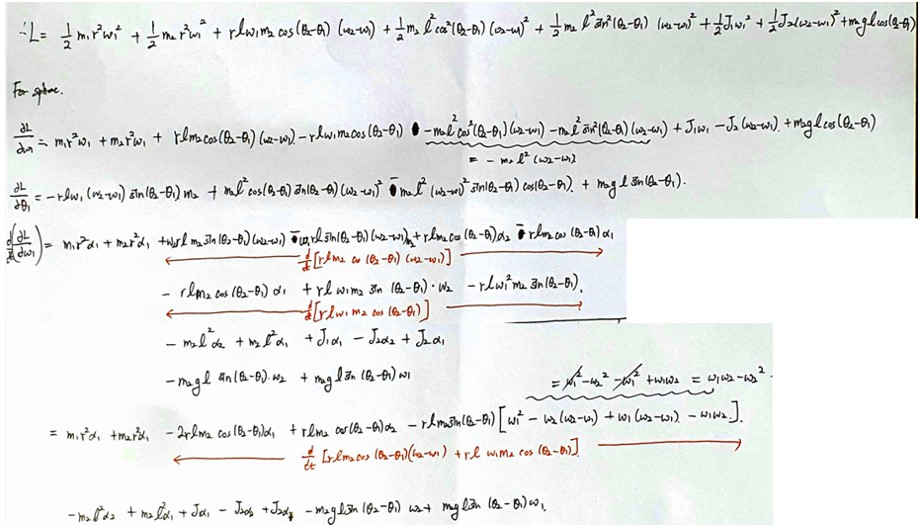 ∴ L = 1/2 m₁r²ω₁² + 1/2 m₂r²ω₁² + rlω₁m₂cos(θ₂-θ₁)(ω₂-ω₁) + 1/2 m₂l²cos²(θ₂-θ₁)(ω₂-ω₁)² + 1/2 m₂l²sin²(θ₂-θ₁)(ω₂-ω₁)² + 1/2 J₁ω₁² + 1/2 J₂(ω₂-ω₁)² + m₂glcos(θ₂-θ₁)
For sphere.
∂L/∂ω₁ = m₁r²ω₁ + m₂r²ω₁ + rlm₂cos(θ₂-θ₁)(ω₂-ω₁) - rlω₁m₂cos(θ₂-θ₁) - m₂l²cos²(θ₂-θ₁)(ω₂-ω₁) - m₂l²sin²(θ₂-θ₁)(ω₂-ω₁) + J₁ω₁ - J₂(ω₂-ω₁) + m₂glcos(θ₂-θ₁)
= -m₂l²(ω₂-ω₁)
∂L/∂θ₁ = -rlω₁(ω₂-ω₁)sin(θ₂-θ₁)m₂ + m₂l²cos(θ₂-θ₁)sin(θ₂-θ₁)(ω₂-ω₁)² - m₂l²(ω₂-ω₁)²sin(θ₂-θ₁)cos(θ₂-θ₁) + m₂glsin(θ₂-θ₁).
d/dt(∂L/∂ω₁) = m₁r²α₁ + m₂r²α₁ + ω₂rlm₂sin(θ₂-θ₁)(ω₂-ω₁) - ω₁rlsin(θ₂-θ₁)(ω₂-ω₁)m₂ + rlm₂cos(θ₂-θ₁)α₂ - rlm₂cos(θ₂-θ₁)α₁
d/dt[rlm₂cos(θ₂-θ₁)(ω₂-ω₁)]
- rlm₂cos(θ₂-θ₁)α₁ + rlω₁m₂sin(θ₂-θ₁)·ω₂ - rlω₁²m₂sin(θ₂-θ₁).
d/dt[rlω₁m₂cos(θ₂-θ₁)]
- m₂l²α₂ + m₂l²α₁ + J₁α₁ - J₂α₂ + J₂α₁
- m₂glsin(θ₂-θ₁)·ω₂ + m₂glsin(θ₂-θ₁)ω₁
= ω₁² - ω₂² - ω₁² + ω₁ω₂ = ω₁ω₂ - ω₂².
= m₁r²α₁ + m₂r²α₁ - 2rlm₂cos(θ₂-θ₁)α₁ + rlm₂cos(θ₂-θ₁)α₂ - rlm₂sin(θ₂-θ₁)[ω₁² - ω₂(ω₂-ω₁) + ω₁(ω₂-ω₁) - ω₁ω₂].
d/dt[rlm₂cos(θ₂-θ₁)(ω₂-ω₁) + rlω₁m₂cos(θ₂-θ₁)]
- m₂l²α₂ + m₂l²α₁ + J₁α₁ - J₂α₂ + J₂α₁ - m₂glsin(θ₂-θ₁)ω₂ + m₂glsin(θ₂-θ₁)ω₁.